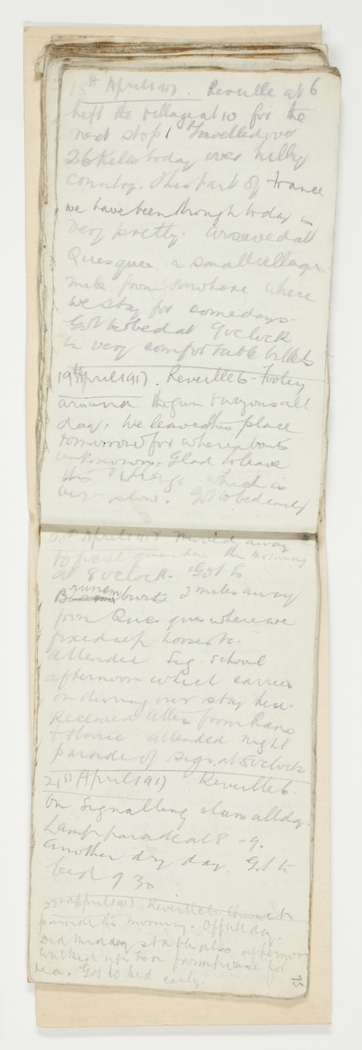 18th April 1917. Reveille at 6
Left the village at 10 for the
next stop travelled over
26 Kilos today over hilly
country. This part of France
we have been through today is
very pretty. arrived at
Quesques a small village
mile from nowhere where
we stay for some days.
Got to bed at 9 oclock
in very comfortable billets
19th April 1917. Reveille 6. Footy
around the gun waggons all
day. We leave this place
tomorrow for whereabouts
unknown. Glad to leave
this village which is
very slow. Got to bed early
20th April 1917 Moved away
to fresh quarters this morning
at 8 oclock. Got to
2 miles away
from Quesques where we
fixed up horses &c.
attended Sig. School
afternoon which carries
on during our stay here.
Received letter from
attended night
parade of sigs. at 8 oclock
21st April 1917 Reveille 6.
on Signalling all day.
Lamp parade at 8 - 9.
another dry day. Got to
bed 9 30
22nd April 1917. Reveille 6
parade this morning. Off all day
Did midday stables also afternoon
walked up to a farmhouse for
tea. Got to bed early.
75